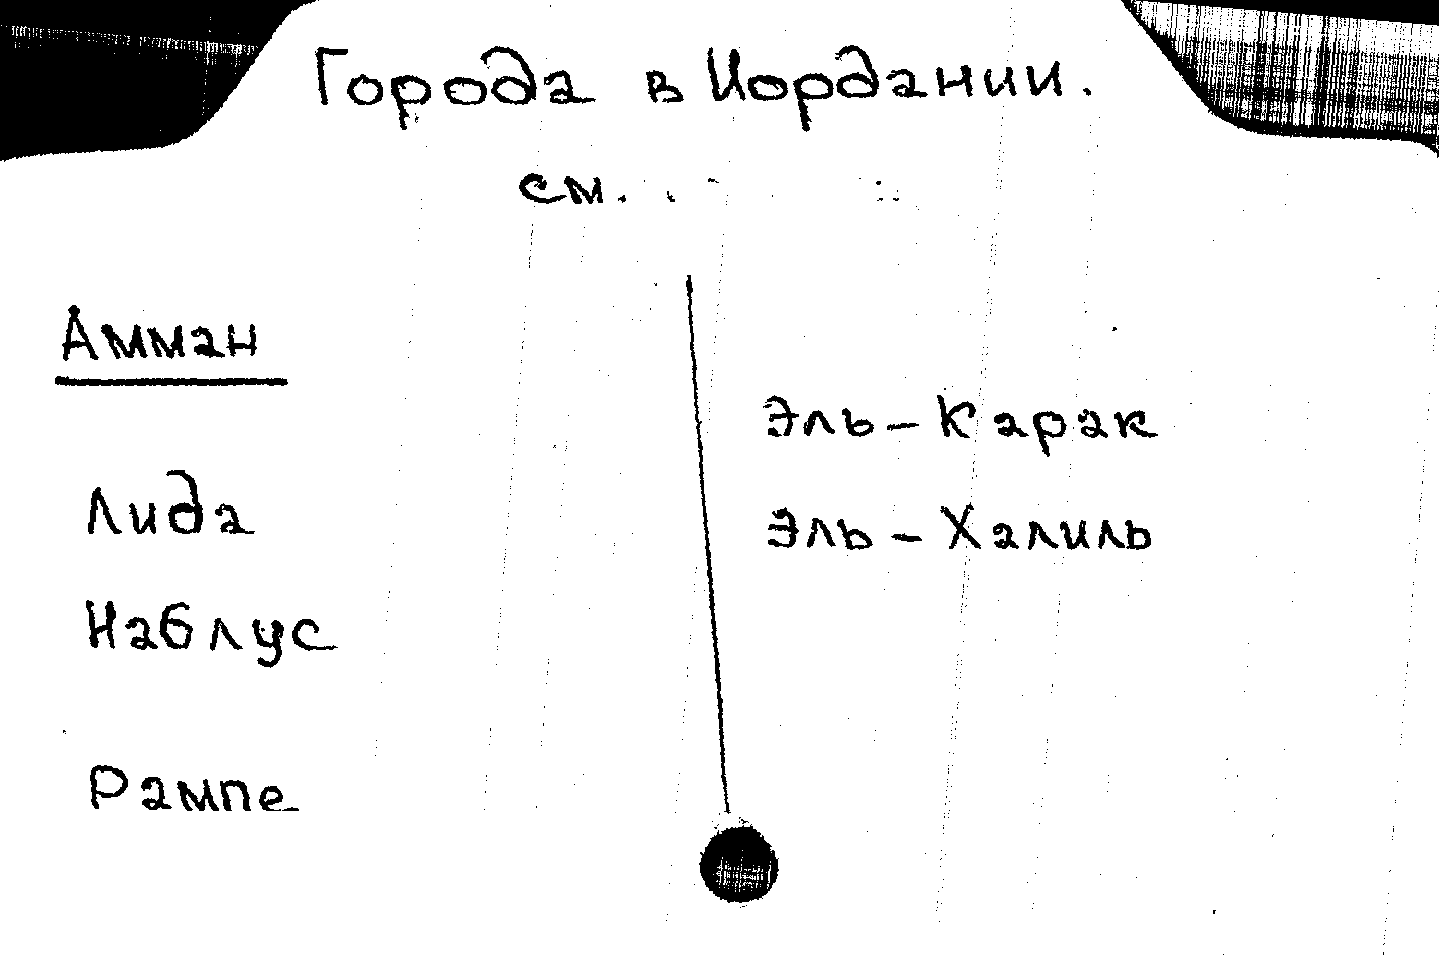 Города в Иордании.
см.
Амман
Лида
Наблус
Рампе
Эль-Карак
Эль-Халиль